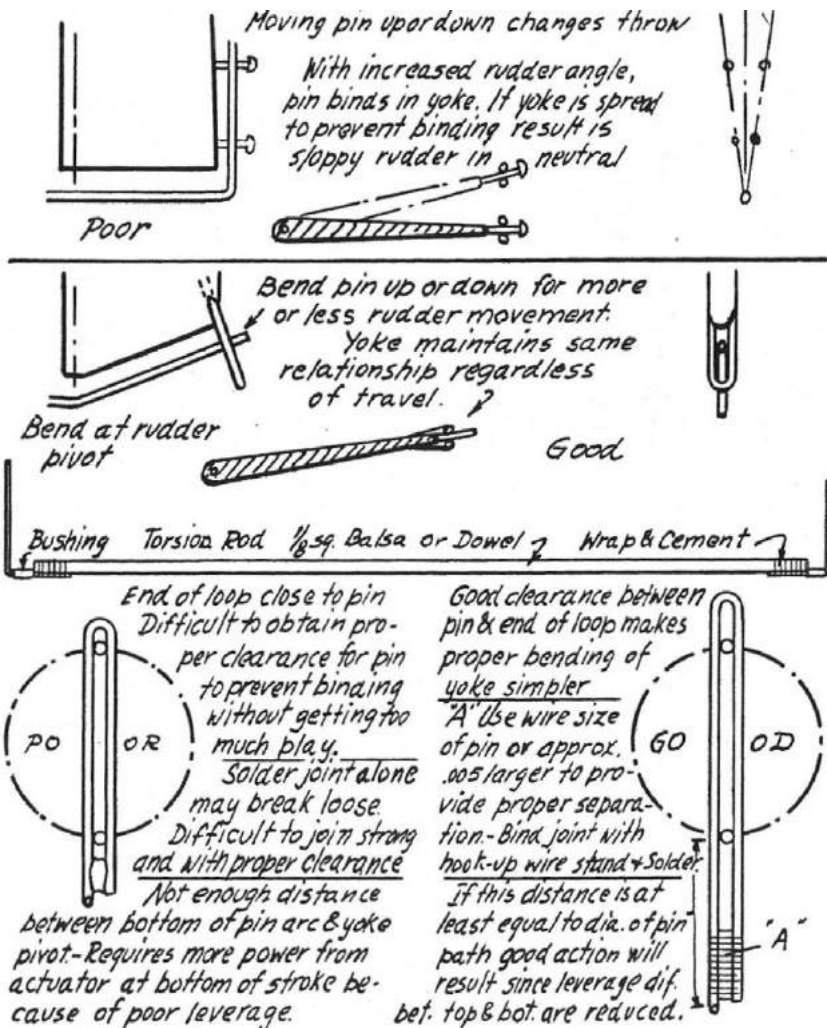 Moving pin up or down changes throw
With increased rudder angle,
pin binds in yoke. If yoke is spread
to prevent binding result is
sloppy rudder in neutral
Poor
Bend pin up or down for more
or less rudder movement.
Yoke maintains same
relationship regardless
of travel.
Bend at rudder
pivot
Good
Bushing Torsion Rod 1/8 sq. Balsa or Dowel Wrap & Cement
End of loop close to pin
Difficult to obtain pro-
per clearance for pin
to prevent binding
without getting too
much play.
Solder joint alone
may break loose.
Difficult to join strong
and with proper clearance
Not enough distance
between bottom of pin arc & yoke
pivot.- Requires more power from
actuator at bottom of stroke be-
cause of poor leverage.
PO OR
Good clearance between
pin & end of loop makes
proper bending of
yoke simpler
"A" Use wire size
of pin or approx.
.005 larger to pro-
vide proper separa-
tion.- Bind joint with
hook-up wire stand & Solder.
If this distance is at
least equal to dia. of pin
path good action will
result since leverage dif.
bet. top & bot. are reduced.
GO OD
"A"